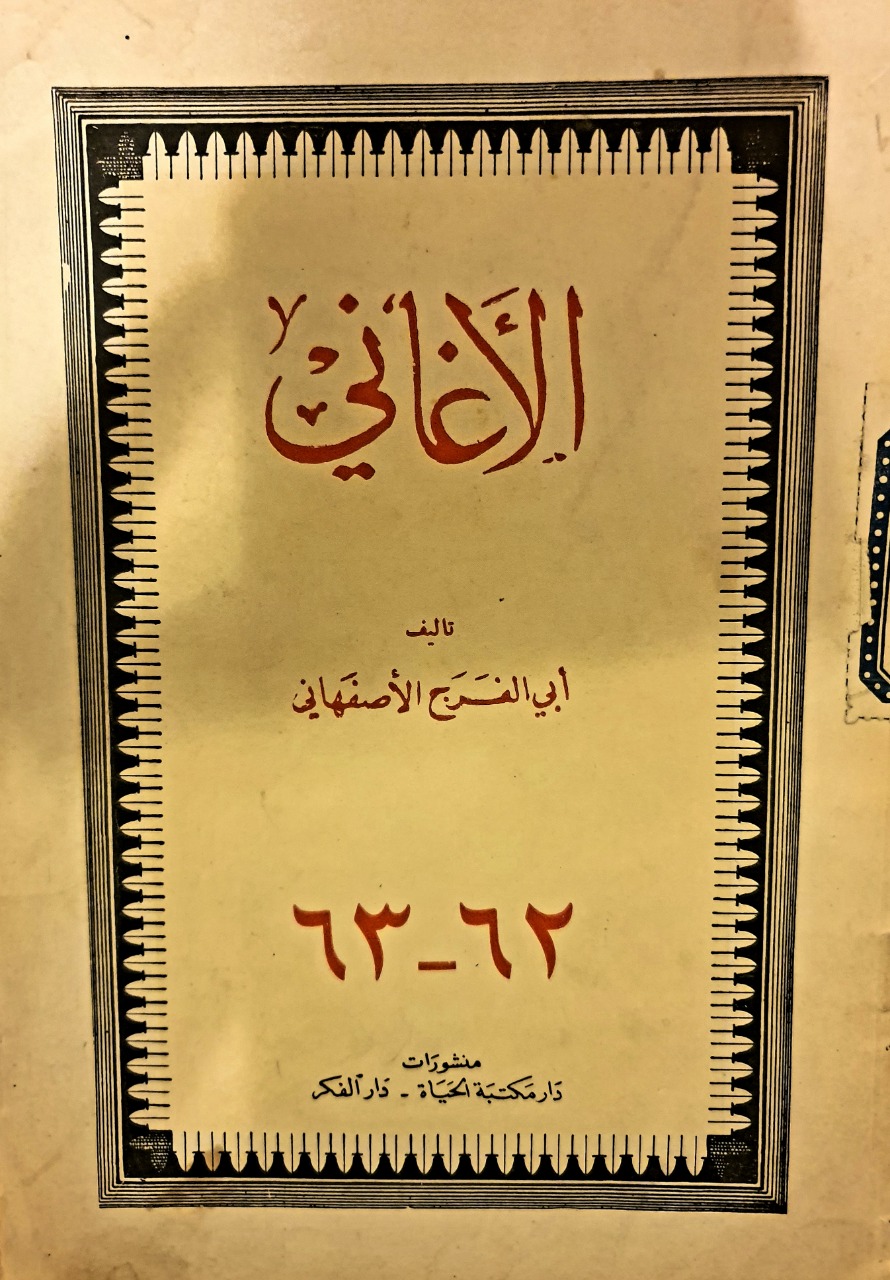 الأغاني
تاليف
أبي الفَرَج الأصفَهاني
٦٢ - ٦٣
منشورَات
دَار مَكتبَة الحَيَاة - دَار الفكر